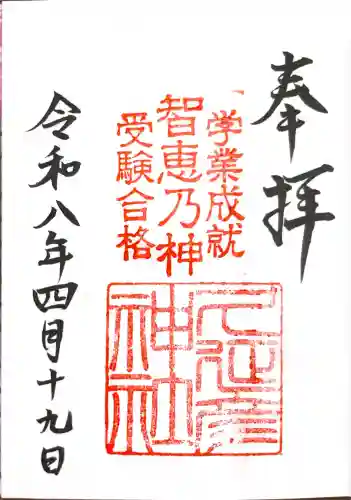 奉拝
学業成就
智恵乃神
受験合格
久延彦
神社
令和八年四月十九日